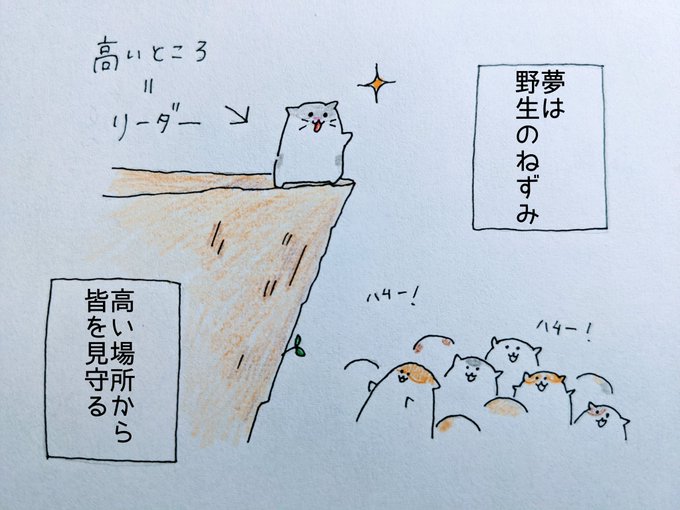 高いところ
=
リーダー
夢は
野生のねずみ
ハイー!
ハイー!
高い場所から
皆を見守る